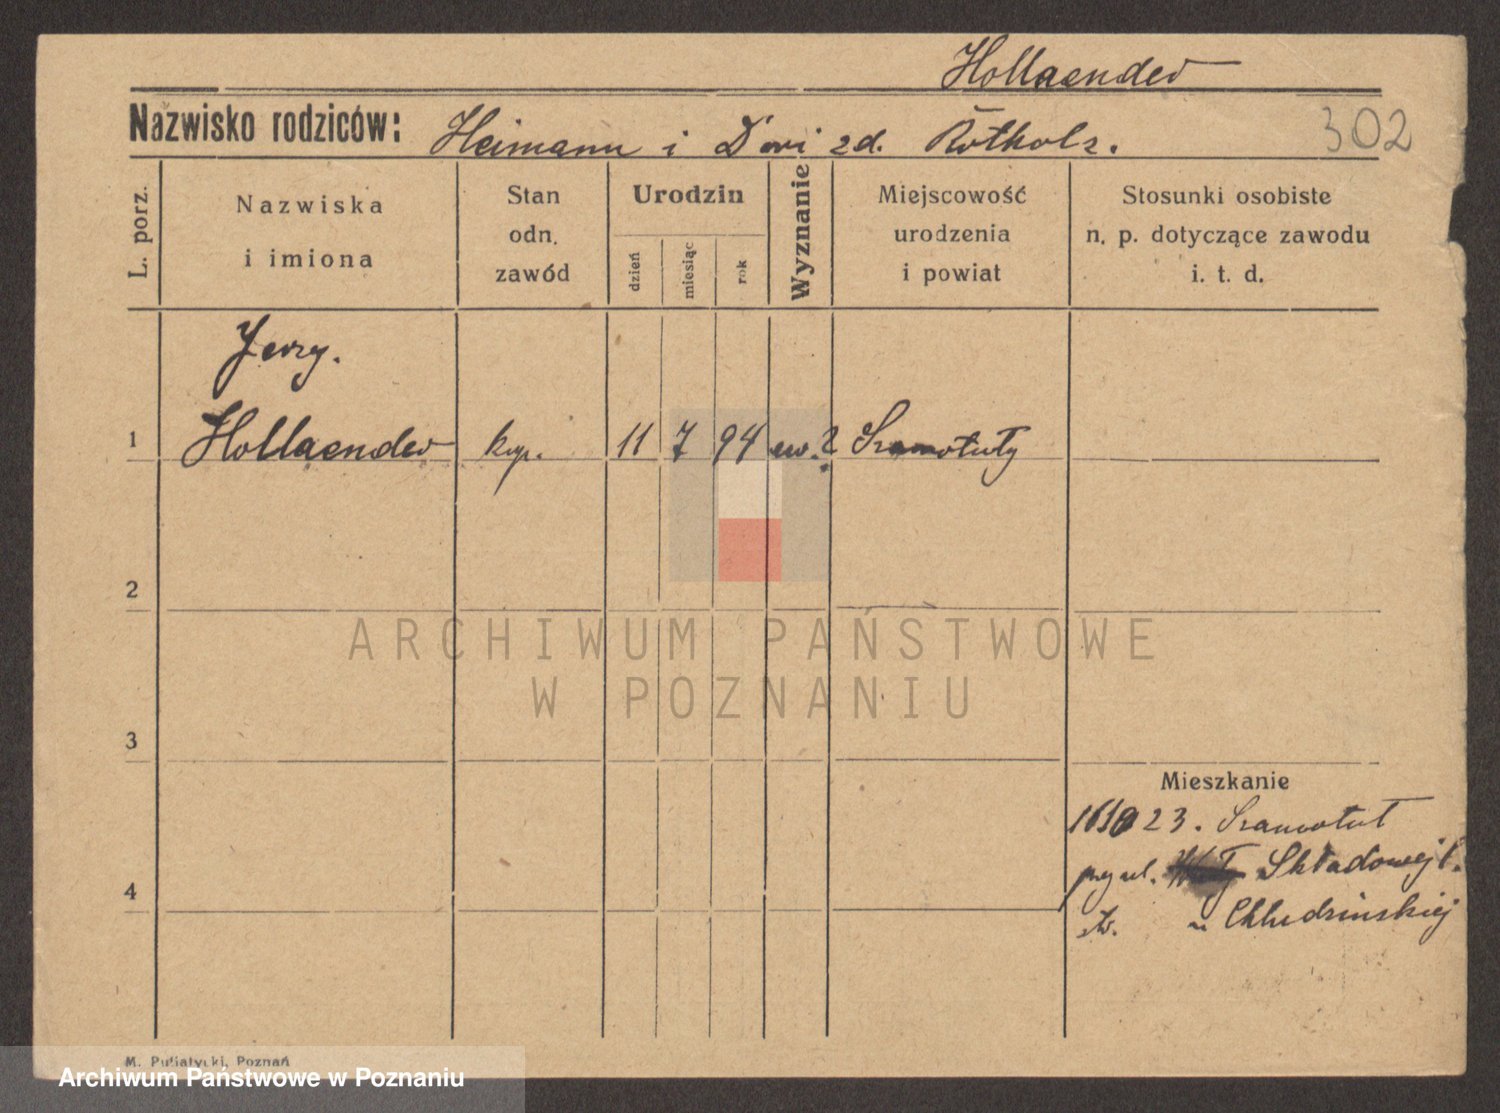 Hollaender
Nazwisko rodziców: Heimann i Dori zd. Rotholz. 302
L. porz.
Nazwiska
i imiona
Stan
odn.
zawód
Urodzin
dzień
miesiąc
rok
Wyznanie
Miejscowość
urodzenia
i powiat
Stosunki osobiste
n. p. dotyczące zawodu
i. t. d.
Jerzy.
1 Hollaender kup. 11 7 94 ew.? Szamotuły
2
ARCHIWUM PAŃSTWOWE
W POZNANIU
3
Mieszkanie
23. Szamotuł
przy ul. Składowej
4
u Chludzińskiej
M. Putiatycki, Poznań
Archiwum Państwowe w Poznaniu